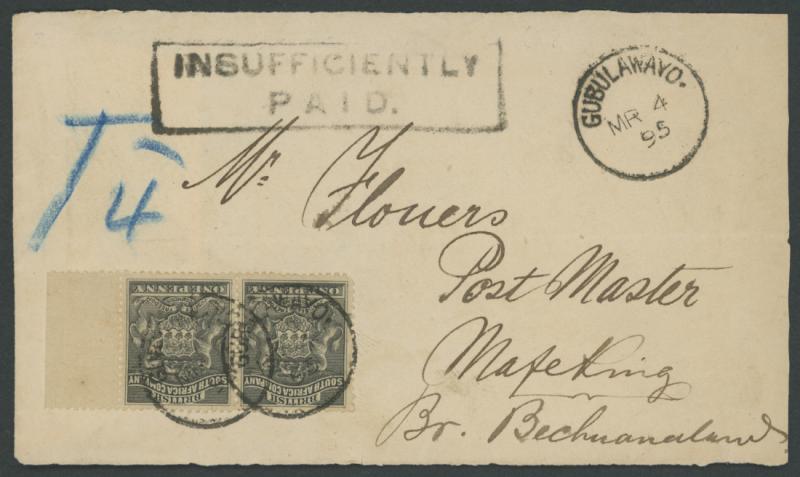 INSUFFICIENTLY
PAID.
GUBULAWAYO.
MR 4
95
T 4
Mr. Flowers
Post Master
Mafeking
Br. Bechuanaland
ONE PENNY
BRITISH
SOUTH AFRICA COMPANY
ONE PENNY
BRITISH
SOUTH AFRICA COMPANY